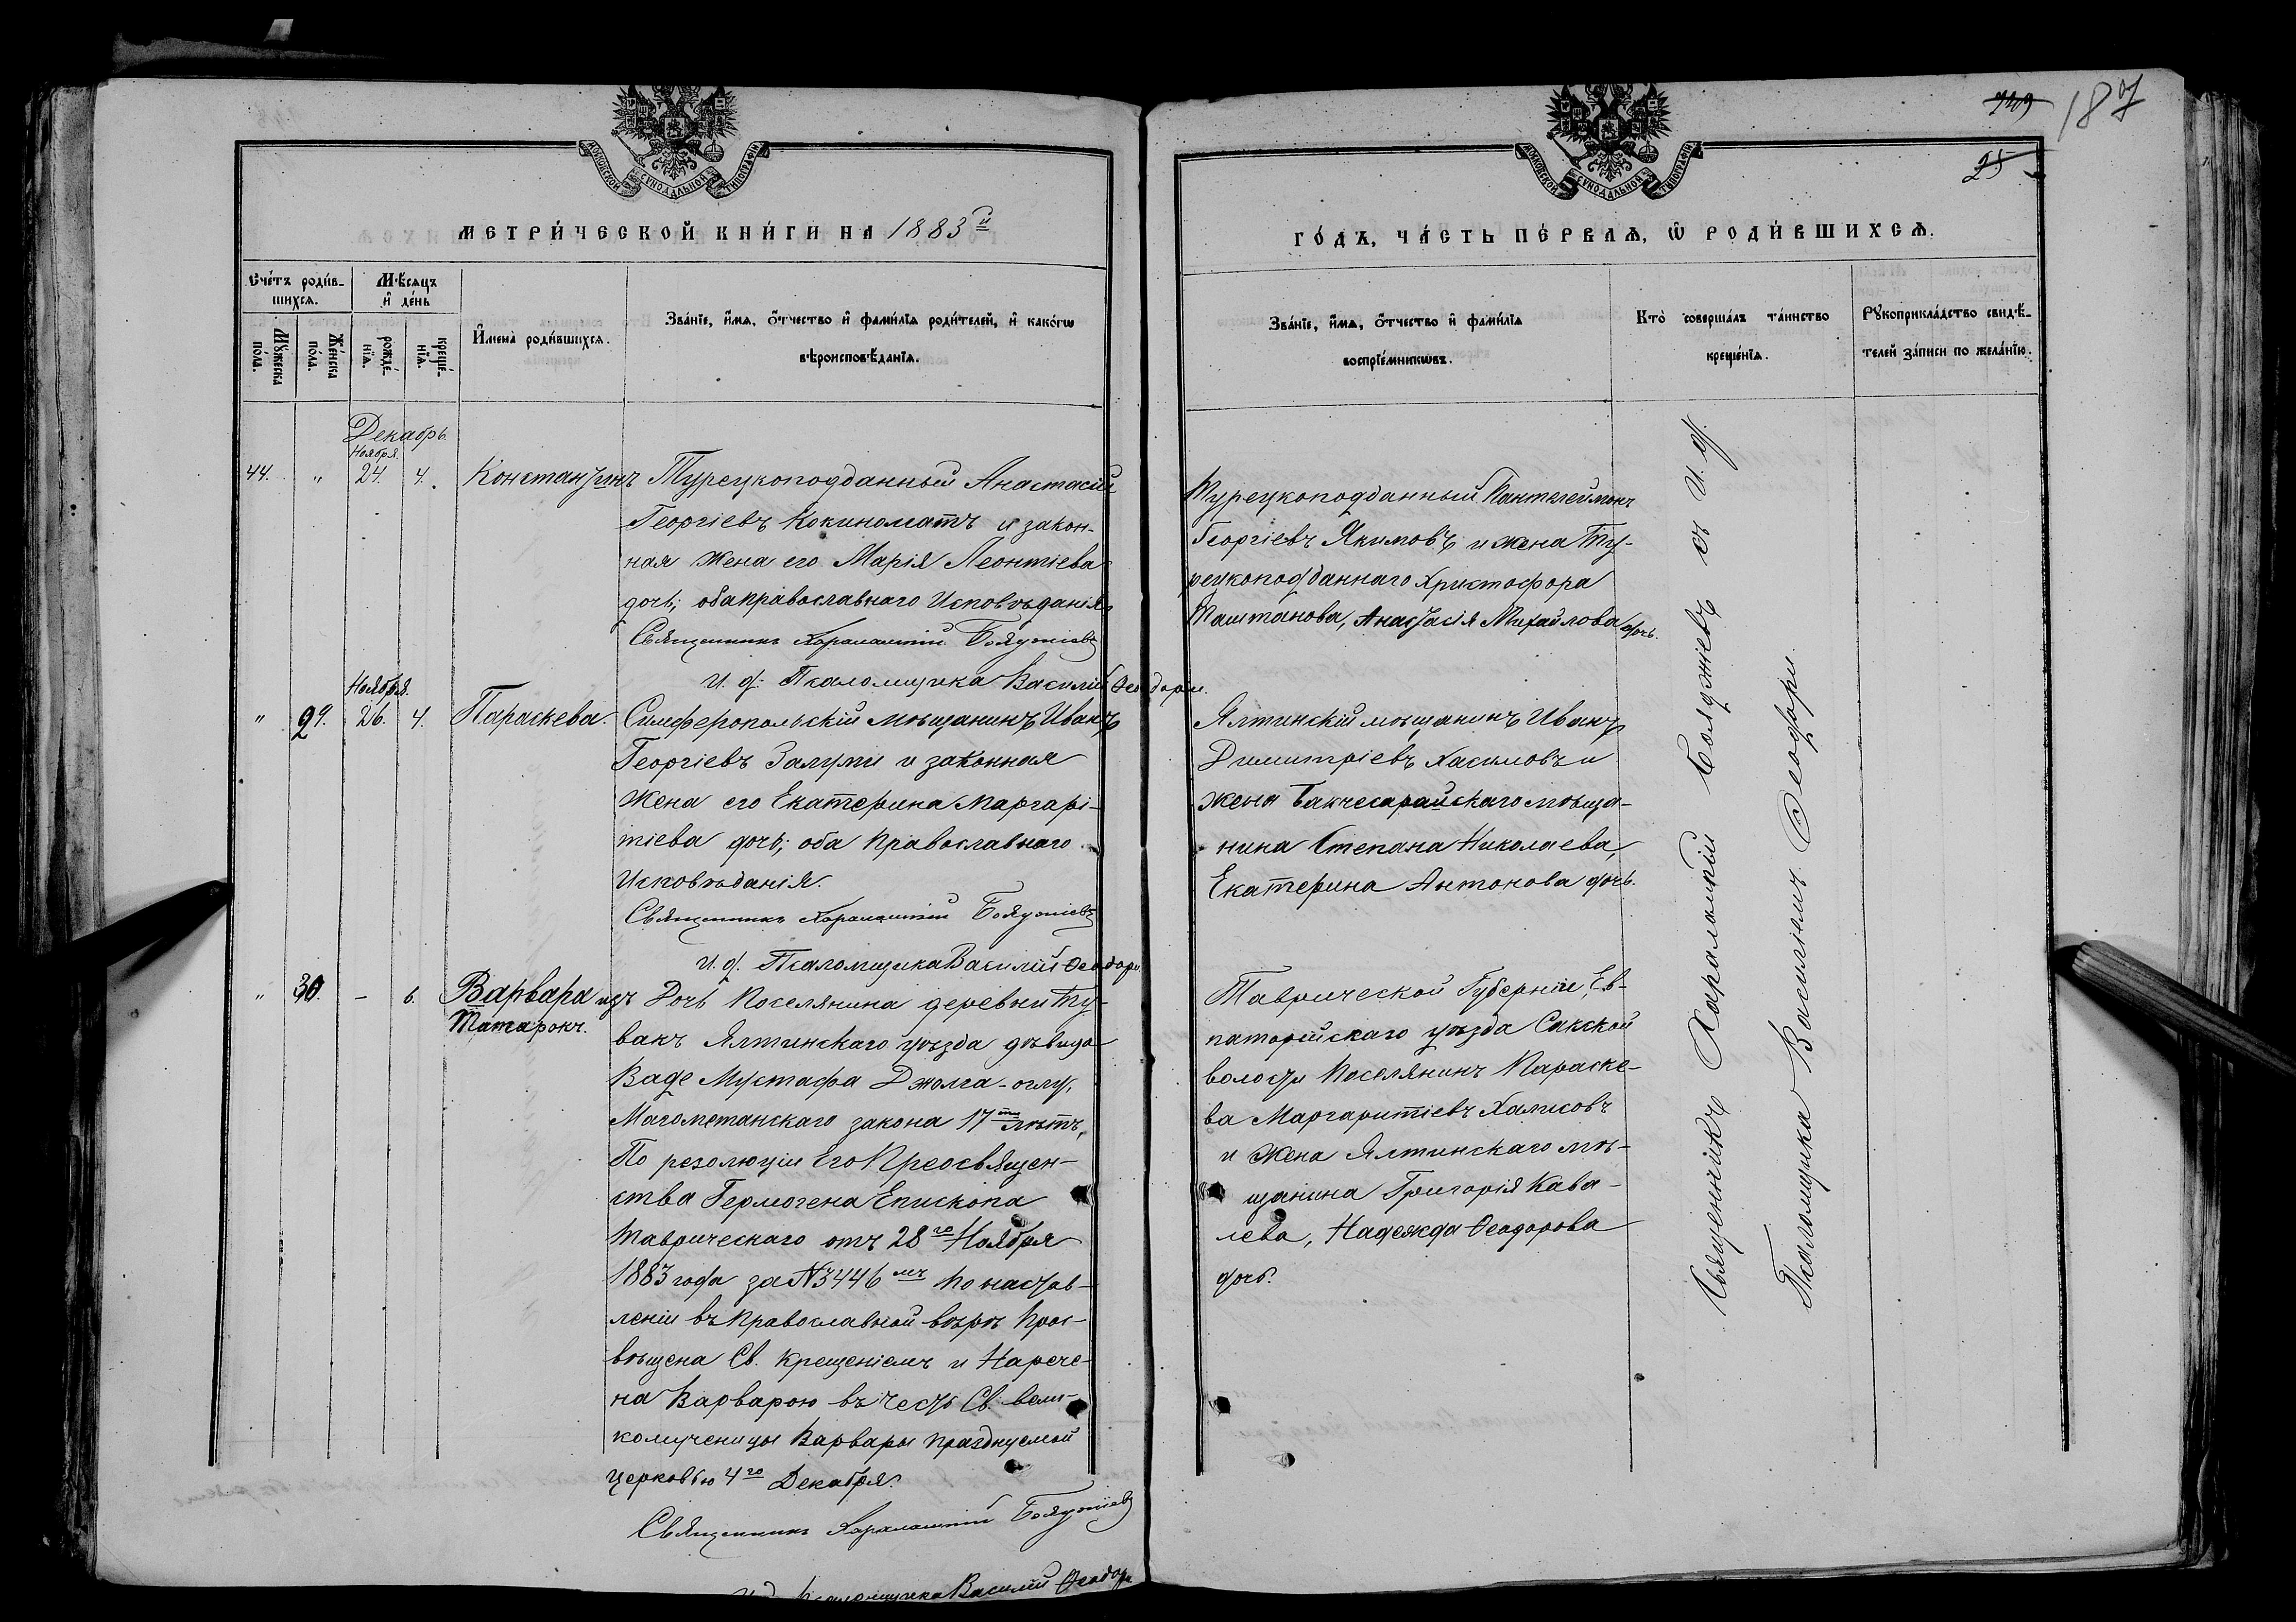 МОСКОВСКОЙ СѴНОДАЛЬНОЙ ТИПОГРАФІИ
МЕТРИ́ЧЕСКОЙ КНИ́ГИ НА 1883й
Сче́тъ роди́в-
шихсѧ.
Мѣ́сѧцъ
и҆ де́нь
Мꙋ́жеска
по́ла.
Же́нска
по́ла.
рожде́-
нїѧ.
креще́-
нїѧ.
И҆мена̀ роди́вшихсѧ.
Зва́нїе, и҆́мѧ, ѻ҆́тчество и҆ фами́лїѧ роди́телей, и҆ како́гѡ
вѣроисповѣ́данїѧ.
Декабрь.
Ноября.
44. " 24. 4. Константинъ Турецкоподданный Анастасій
Георгіевъ Кокиноматъ и закон-
ная жена его Марія Леонтіева
дочь; оба православнаго Исповѣданія
Священникъ Харалампій Бояджіевъ
И. д. Псаломщика Василій Ѳеодори.
Ноября.
" 29. 26. 4. Параскева. Симферопольскій мѣщанинъ Иванъ
Георгіевъ Залуми и законная
жена его Екатерина Маргарі-
тіева дочь; оба Православнаго
Исповѣданія.
Священникъ Харалампій Бояджіевъ
И. д. Псаломщика Василій Ѳеодори
" 30. – 6. Варвара изъ Дочь Поселянина деревни Ту-
Татарокъ.
вакъ Ялтинскаго уѣзда дѣвица
Ваде Мустафа Джолга-оглу,
Магометанскаго закона 17ти лѣтъ,
По резолюціи Его Преосвящен-
ства Гермогена Епископа
Таврическаго отъ 28го Ноября
1883 года за №3446мъ по настав-
леніи въ Православной вѣрѣ прос-
вѣщена Св. крещеніемъ и Нарече-
на Варварою въ честь Св. вели-
комученицы Варвары празднуемой
церковью 4го Декабря.
Священникъ Харалампій Бояджіевъ
И. д. Псаломщика Василій Ѳеодори
187
25
МОСКОВСКОЙ СѴНОДАЛЬНОЙ ТИПОГРАФІИ
ГО́ДЪ, ЧА́СТЬ ПЕ́РВАѦ, Ѡ҆ РОДИ́ВШИХСѦ.
Зва́нїе, и҆́мѧ, ѻ҆́тчество и҆ фами́лїѧ
воспрїе́мникѡвъ.
Кто̀ соверша́лъ та́инство
креще́нїѧ.
Рꙋкоприкла́дство свидѣ́-
телей за́писи по жела́нїю.
Турецкоподданный Пантелеймонъ
Георгіевъ Якимовъ и жена Ту-
рецкоподданнаго Христофора
Таштанова, Анастасія Михайлова дочь.
Ялтинскій мѣщанинъ Иванъ
Димитріевъ Хасимовъ и
жена Бакчесарайскаго мѣща-
нина Степана Николаева,
Екатерина Антонова дочь.
Таврической Губерніи, Ев-
паторійскаго уѣзда Сакской
волости Поселянинъ Параске-
ва Маргаритіевъ Халисовъ
и Жена Ялтинскаго мѣ-
щанина Григорія Кава-
лева, Надежда Ѳеодорова
дочь.
Священникъ Харалампій Бояджіевъ съ И. д.
Псаломщика Василіемъ Ѳеодори.